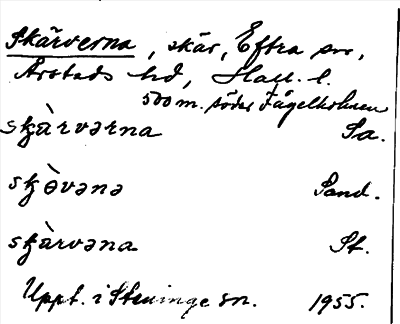 Skärverna, skär, Eftra sn,
Årstads hd, Hall. l.
500 m. söder Fågelholmen
skàrvərna Sa.
skèvənə Sand.
skàrvəna St.
Uppt. i Steninge sn. 1955.